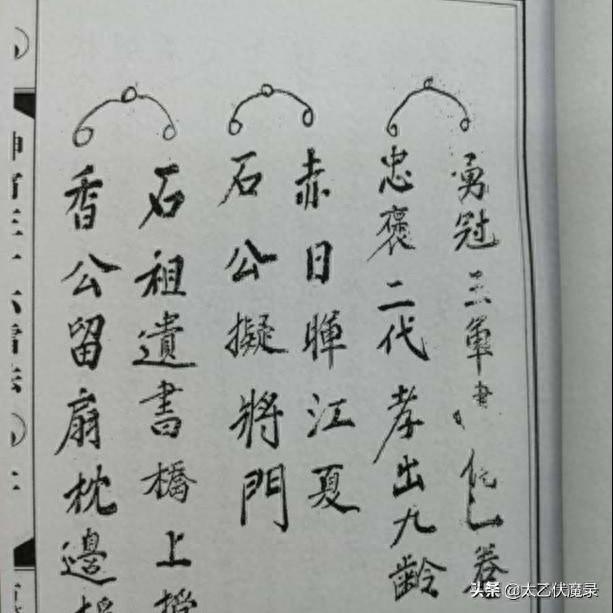 勇冠三軍
忠褒二代孝出九齡
赤日暉江夏
石公擬將門
石祖遺書橋上
香公留扇枕邊
头条 @太乙伏魔录